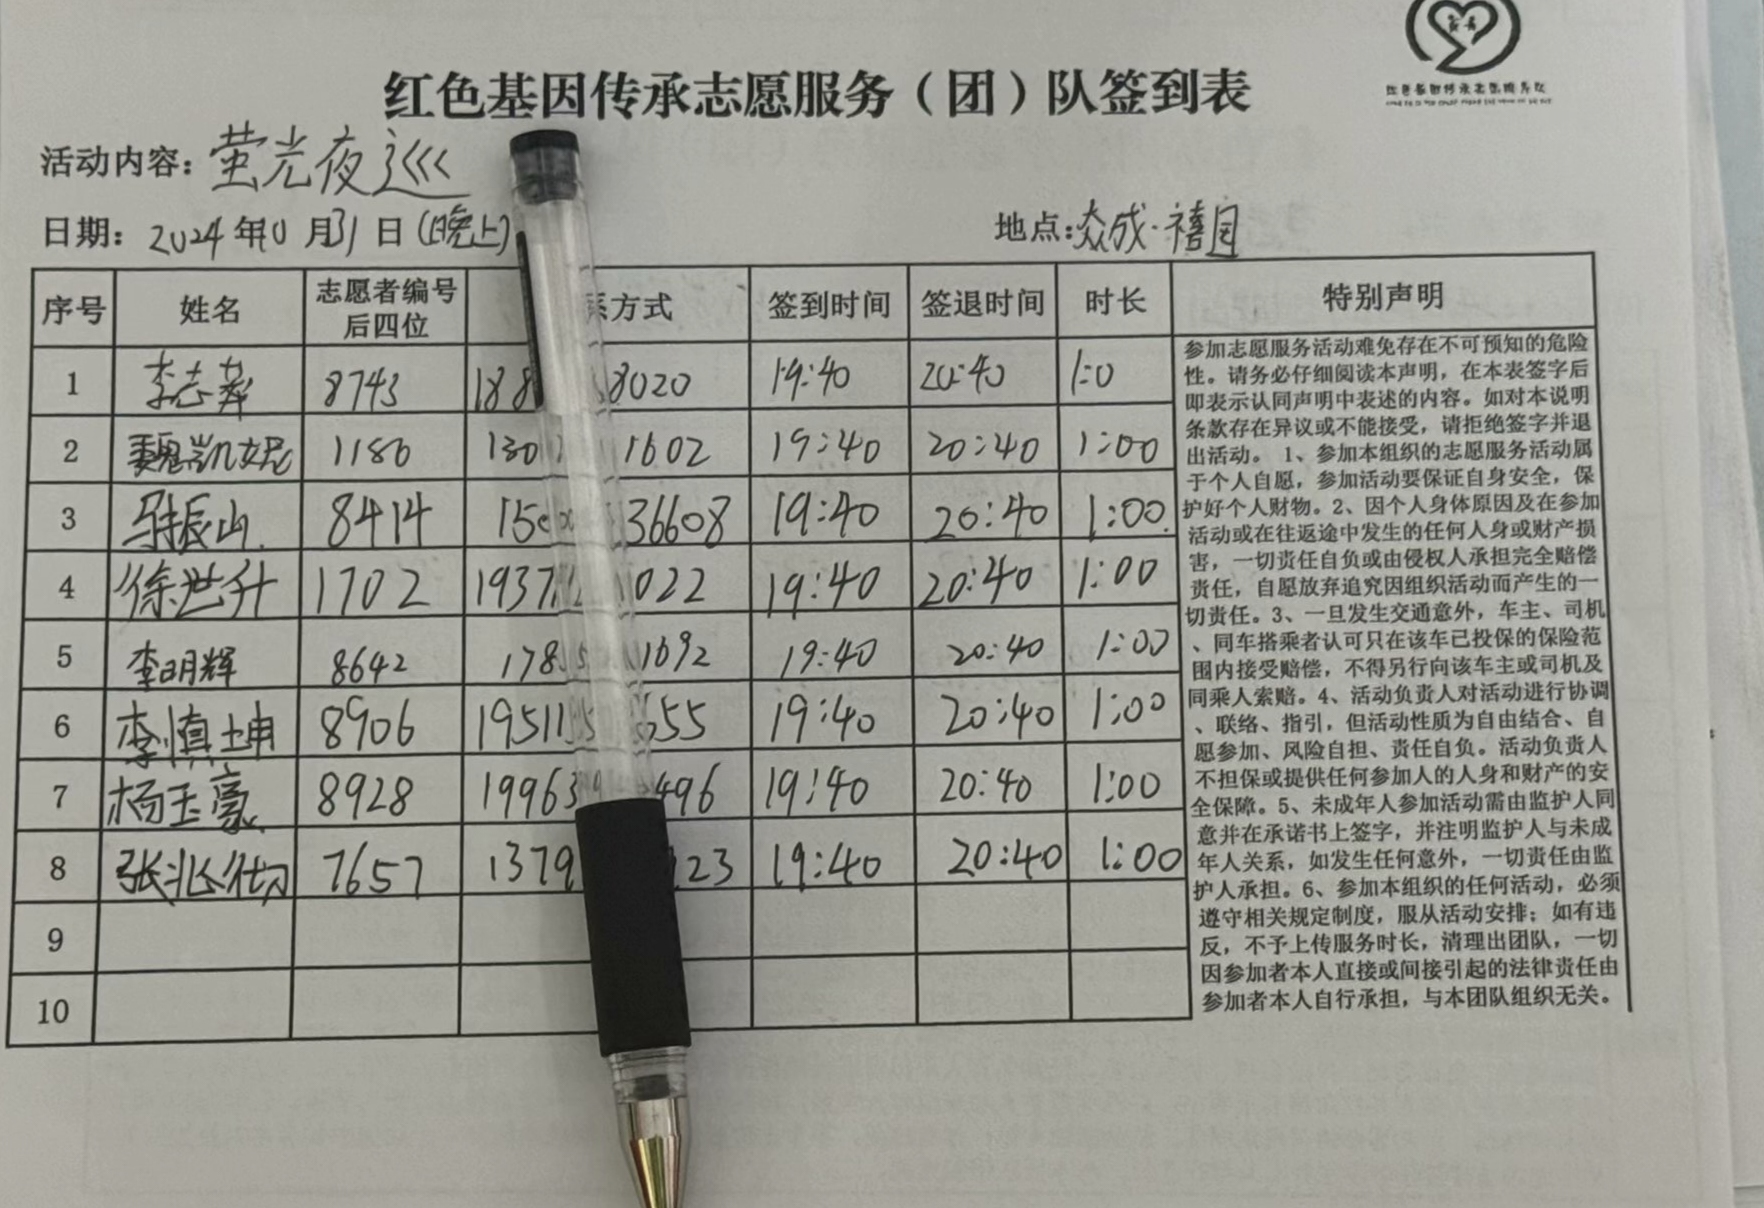 红色基因传承志愿服务（团）队签到表
活动内容：萤光夜巡
日期：2024年10月31日(晚上)
地点：众成·禧园
序号 姓名 志愿者编号后四位 系方式 签到时间 签退时间 时长 特别声明
1 李志 8743 188 8020 19:40 20:40 1:0
2 魏凯妮 1180 130 1602 19:40 20:40 1:00
3 马振山 8414 150 36608 19:40 20:40 1:00
4 徐世升 1702 1937 022 19:40 20:40 1:00
5 李明辉 8642 178 1692 19:40 20:40 1:00
6 李慎坤 8906 19511 655 19:40 20:40 1:00
7 杨玉豪 8928 19963 496 19:40 20:40 1:00
8 张兆仞 7657 1379 123 19:40 20:40 1:00
9
10
参加志愿服务活动难免存在不可预知的危险
性。请务必仔细阅读本声明，在本表签字后
即表示认同声明中表述的内容。如对本说明
条款存在异议或不能接受，请拒绝签字并退
出活动。 1、参加本组织的志愿服务活动属
于个人自愿，参加活动要保证自身安全，保
护好个人财物。2、因个人身体原因及在参加
活动或在往返途中发生的任何人身或财产损
害，一切责任自负或由侵权人承担完全赔偿
责任，自愿放弃追究因组织活动而产生的一
切责任。3、一旦发生交通意外，车主、司机
、同车搭乘者认可只在该车已投保的保险范
围内接受赔偿，不得另行向该车主或司机及
同乘人索赔。4、活动负责人对活动进行协调
、联络、指引，但活动性质为自由结合、自
愿参加、风险自担、责任自负。活动负责人
不担保或提供任何参加人的人身和财产的安
全保障。5、未成年人参加活动需由监护人同
意并在承诺书上签字，并注明监护人与未成
年人关系，如发生任何意外，一切责任由监
护人承担。6、参加本组织的任何活动，必须
遵守相关规定制度，服从活动安排；如有违
反，不予上传服务时长，清理出团队，一切
因参加者本人直接或间接引起的法律责任由
参加者本人自行承担，与本团队组织无关。